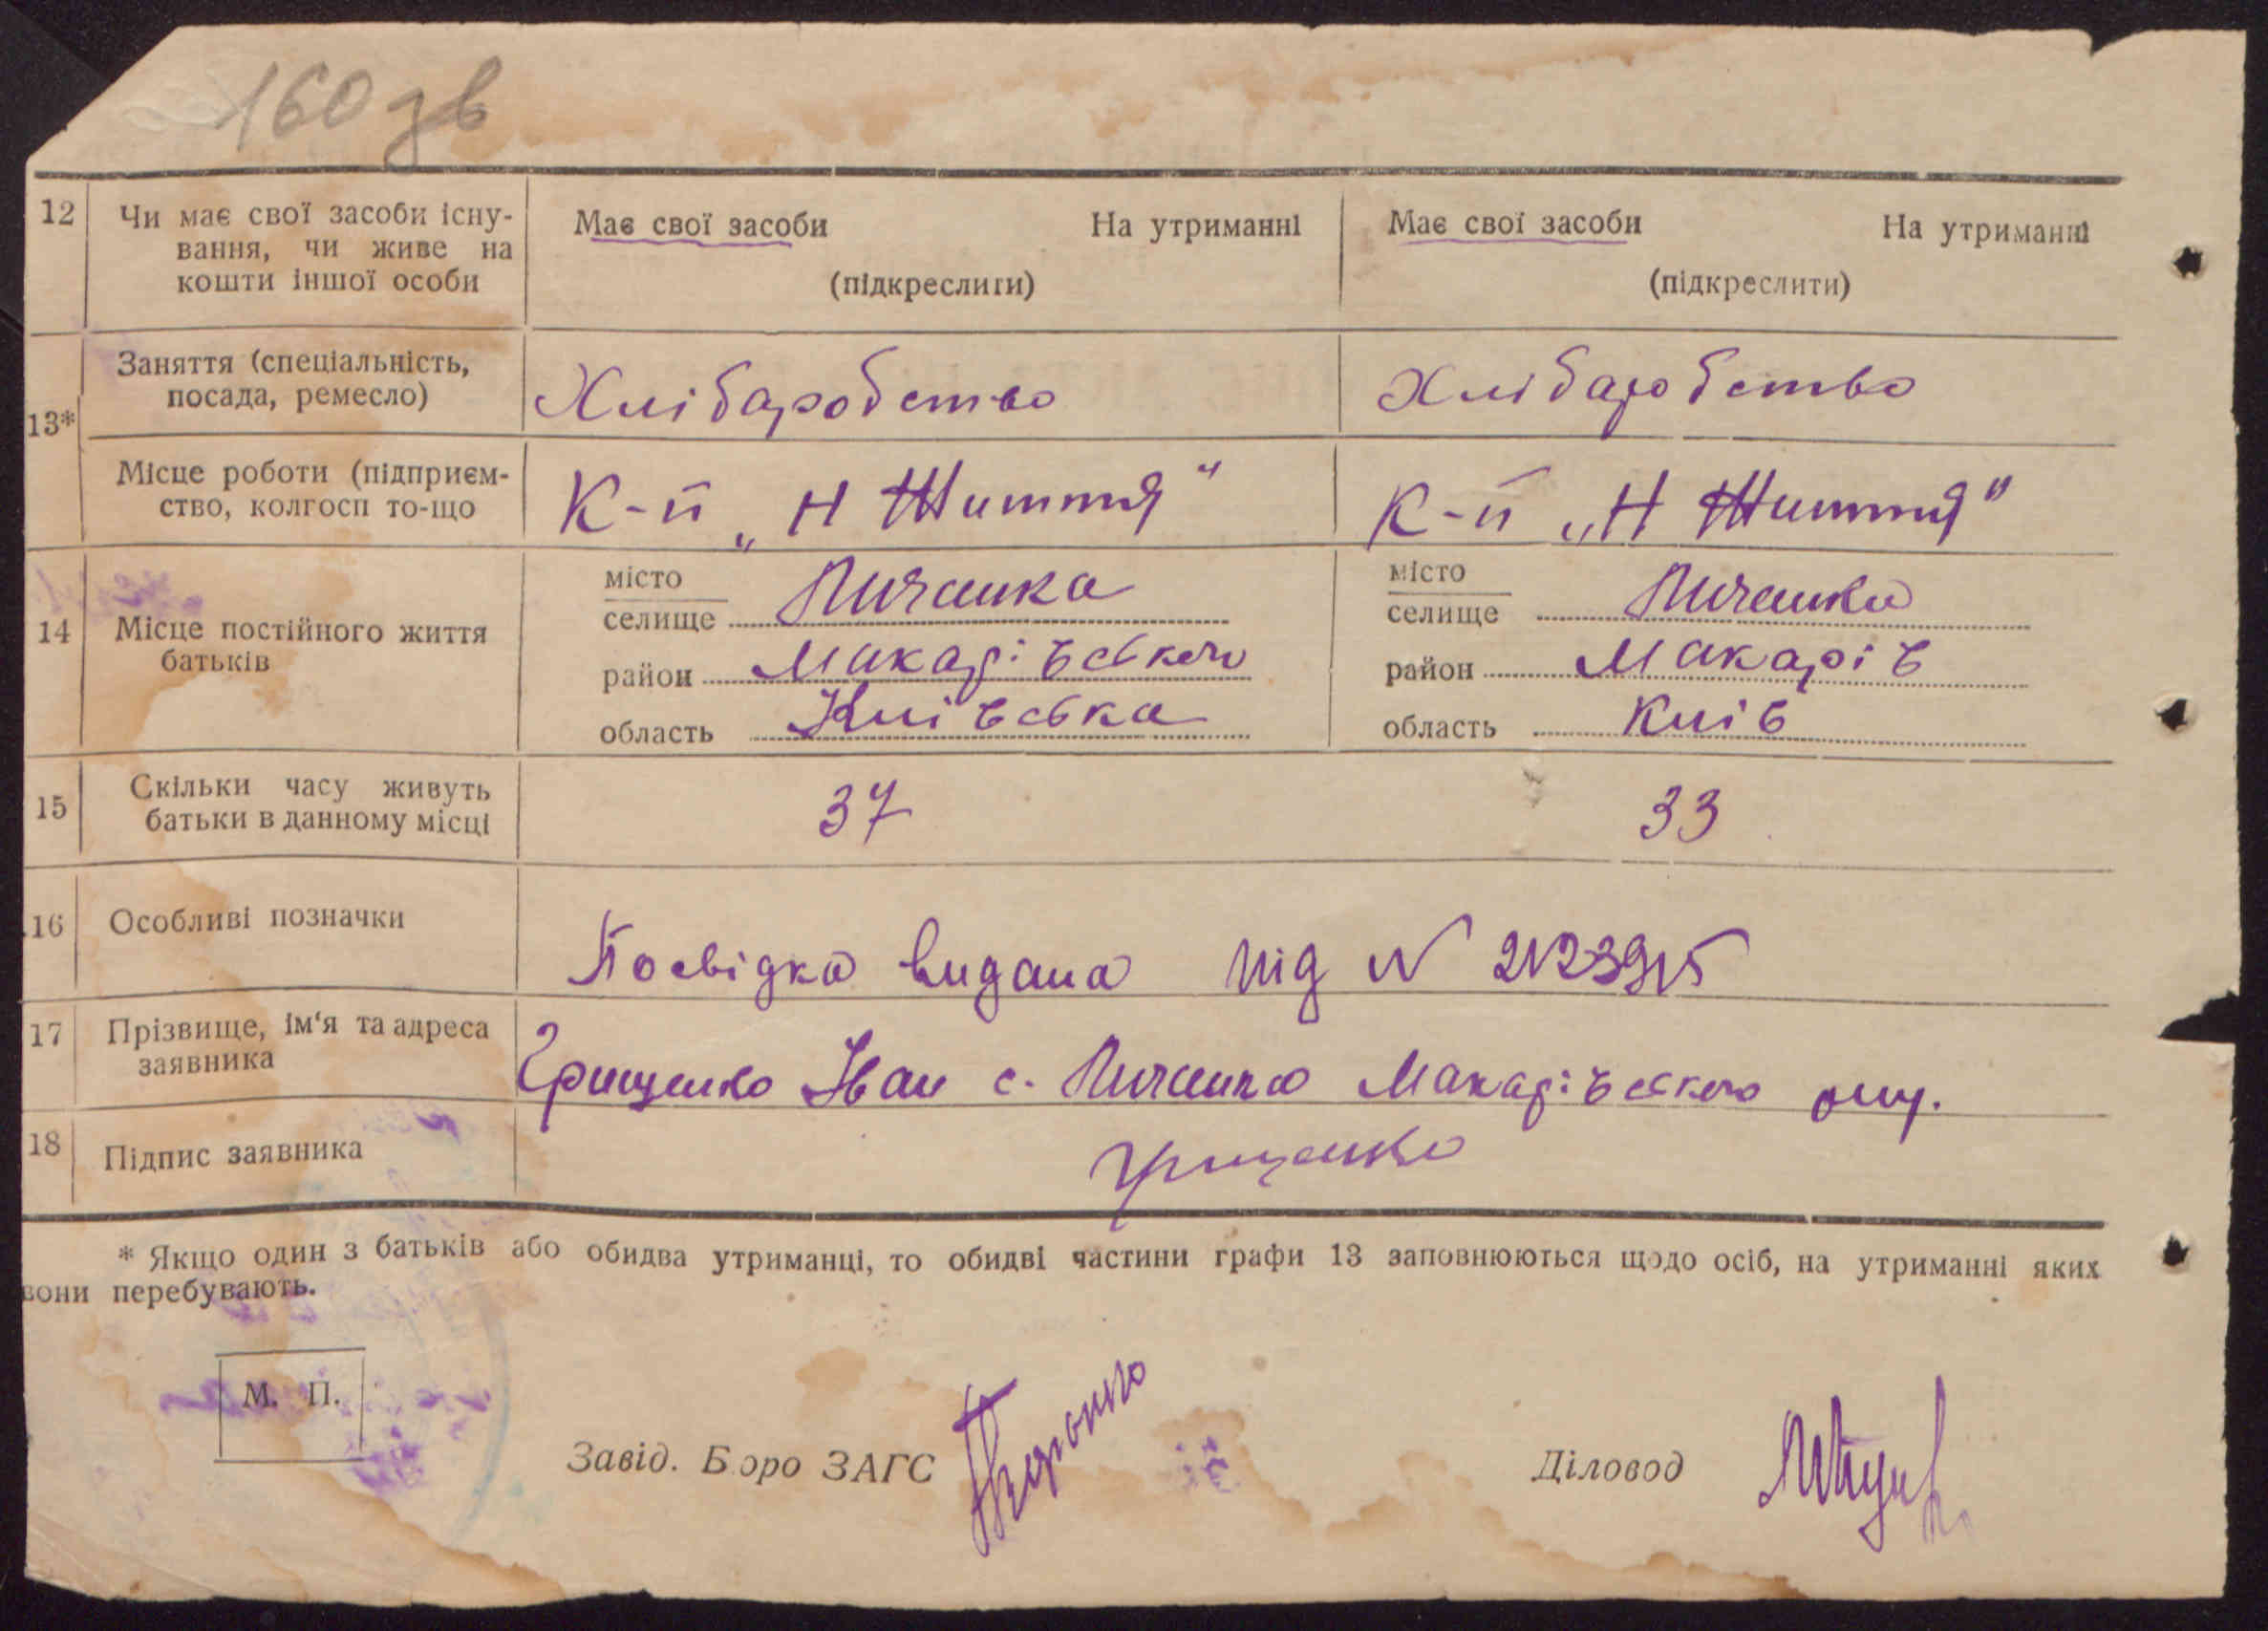 160 зв
12 Чи має свої засоби існу- Має свої засоби На утриманні Має свої засоби На утриманні
вання, чи живе на
кошти іншої особи (підкреслити) (підкреслити)
13* Заняття (спеціальність,
посада, ремесло) Хлібаробство Хлібаробство
Місце роботи (підприєм-
ство, колгосп то-що К-п „Н Життя" К-п „Н Життя"
14 Місце постійного життя
батьків
місто селище Пичанка місто селище Пичанка
район Макарівського район Макарів
область Київська область Київ
15 Скільки часу живуть
батьки в данному місці 37 33
16 Особливі позначки Посвідка видана під N
17 Прізвище, ім'я та адреса
заявника Грищенко Іван с. Макарівского
18 Підпис заявника Грищенко
* Якщо один з батьків або обидва утриманці, то обидві частини графи 13 заповнюються щодо осіб, на утриманні яких
вони перебувають.
М. П.
Завід. Бюро ЗАГС Діловод